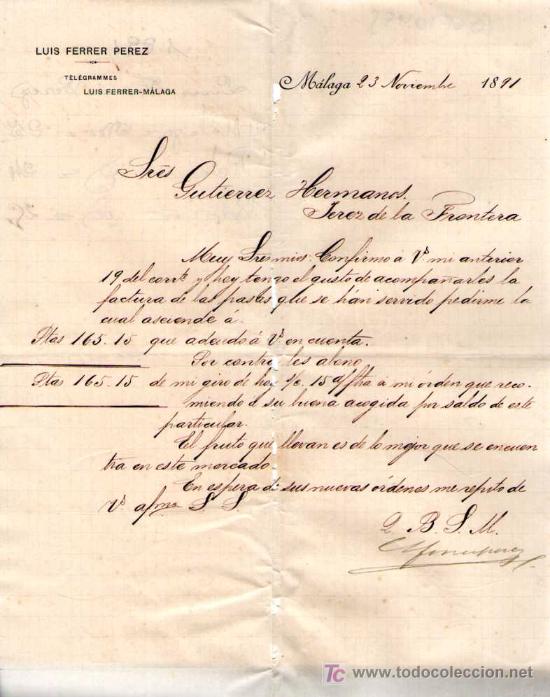 LUIS FERRER PEREZ
TÉLÉGRAMMES
LUIS FERRER-MÁLAGA
Málaga 23 Noviembre 1891
Sres
Gutierrez Hermanos.
Jerez de la Frontera
Muy Sres mios: Confirmo á Vs mi anterior
19 del corrte y hoy tengo el gusto de acompañarles la
factura de las pasas que se han servido pedirme la
cual asciende á
Ptas 165.15 que adeudo á Vs en cuenta.
Por contra les abono
Ptas 165.15 de mi giro de hoy 15 d/fha á mi órden que reco-
miendo á su buena acogida por saldo de este
particular.
El fruto que llevan es de lo mejor que se encuen
tra en este mercado.
En espera de sus nuevas órdenes me repito de
Vs afmo S S
Q. B. S. M.
TC www.todocoleccion.net